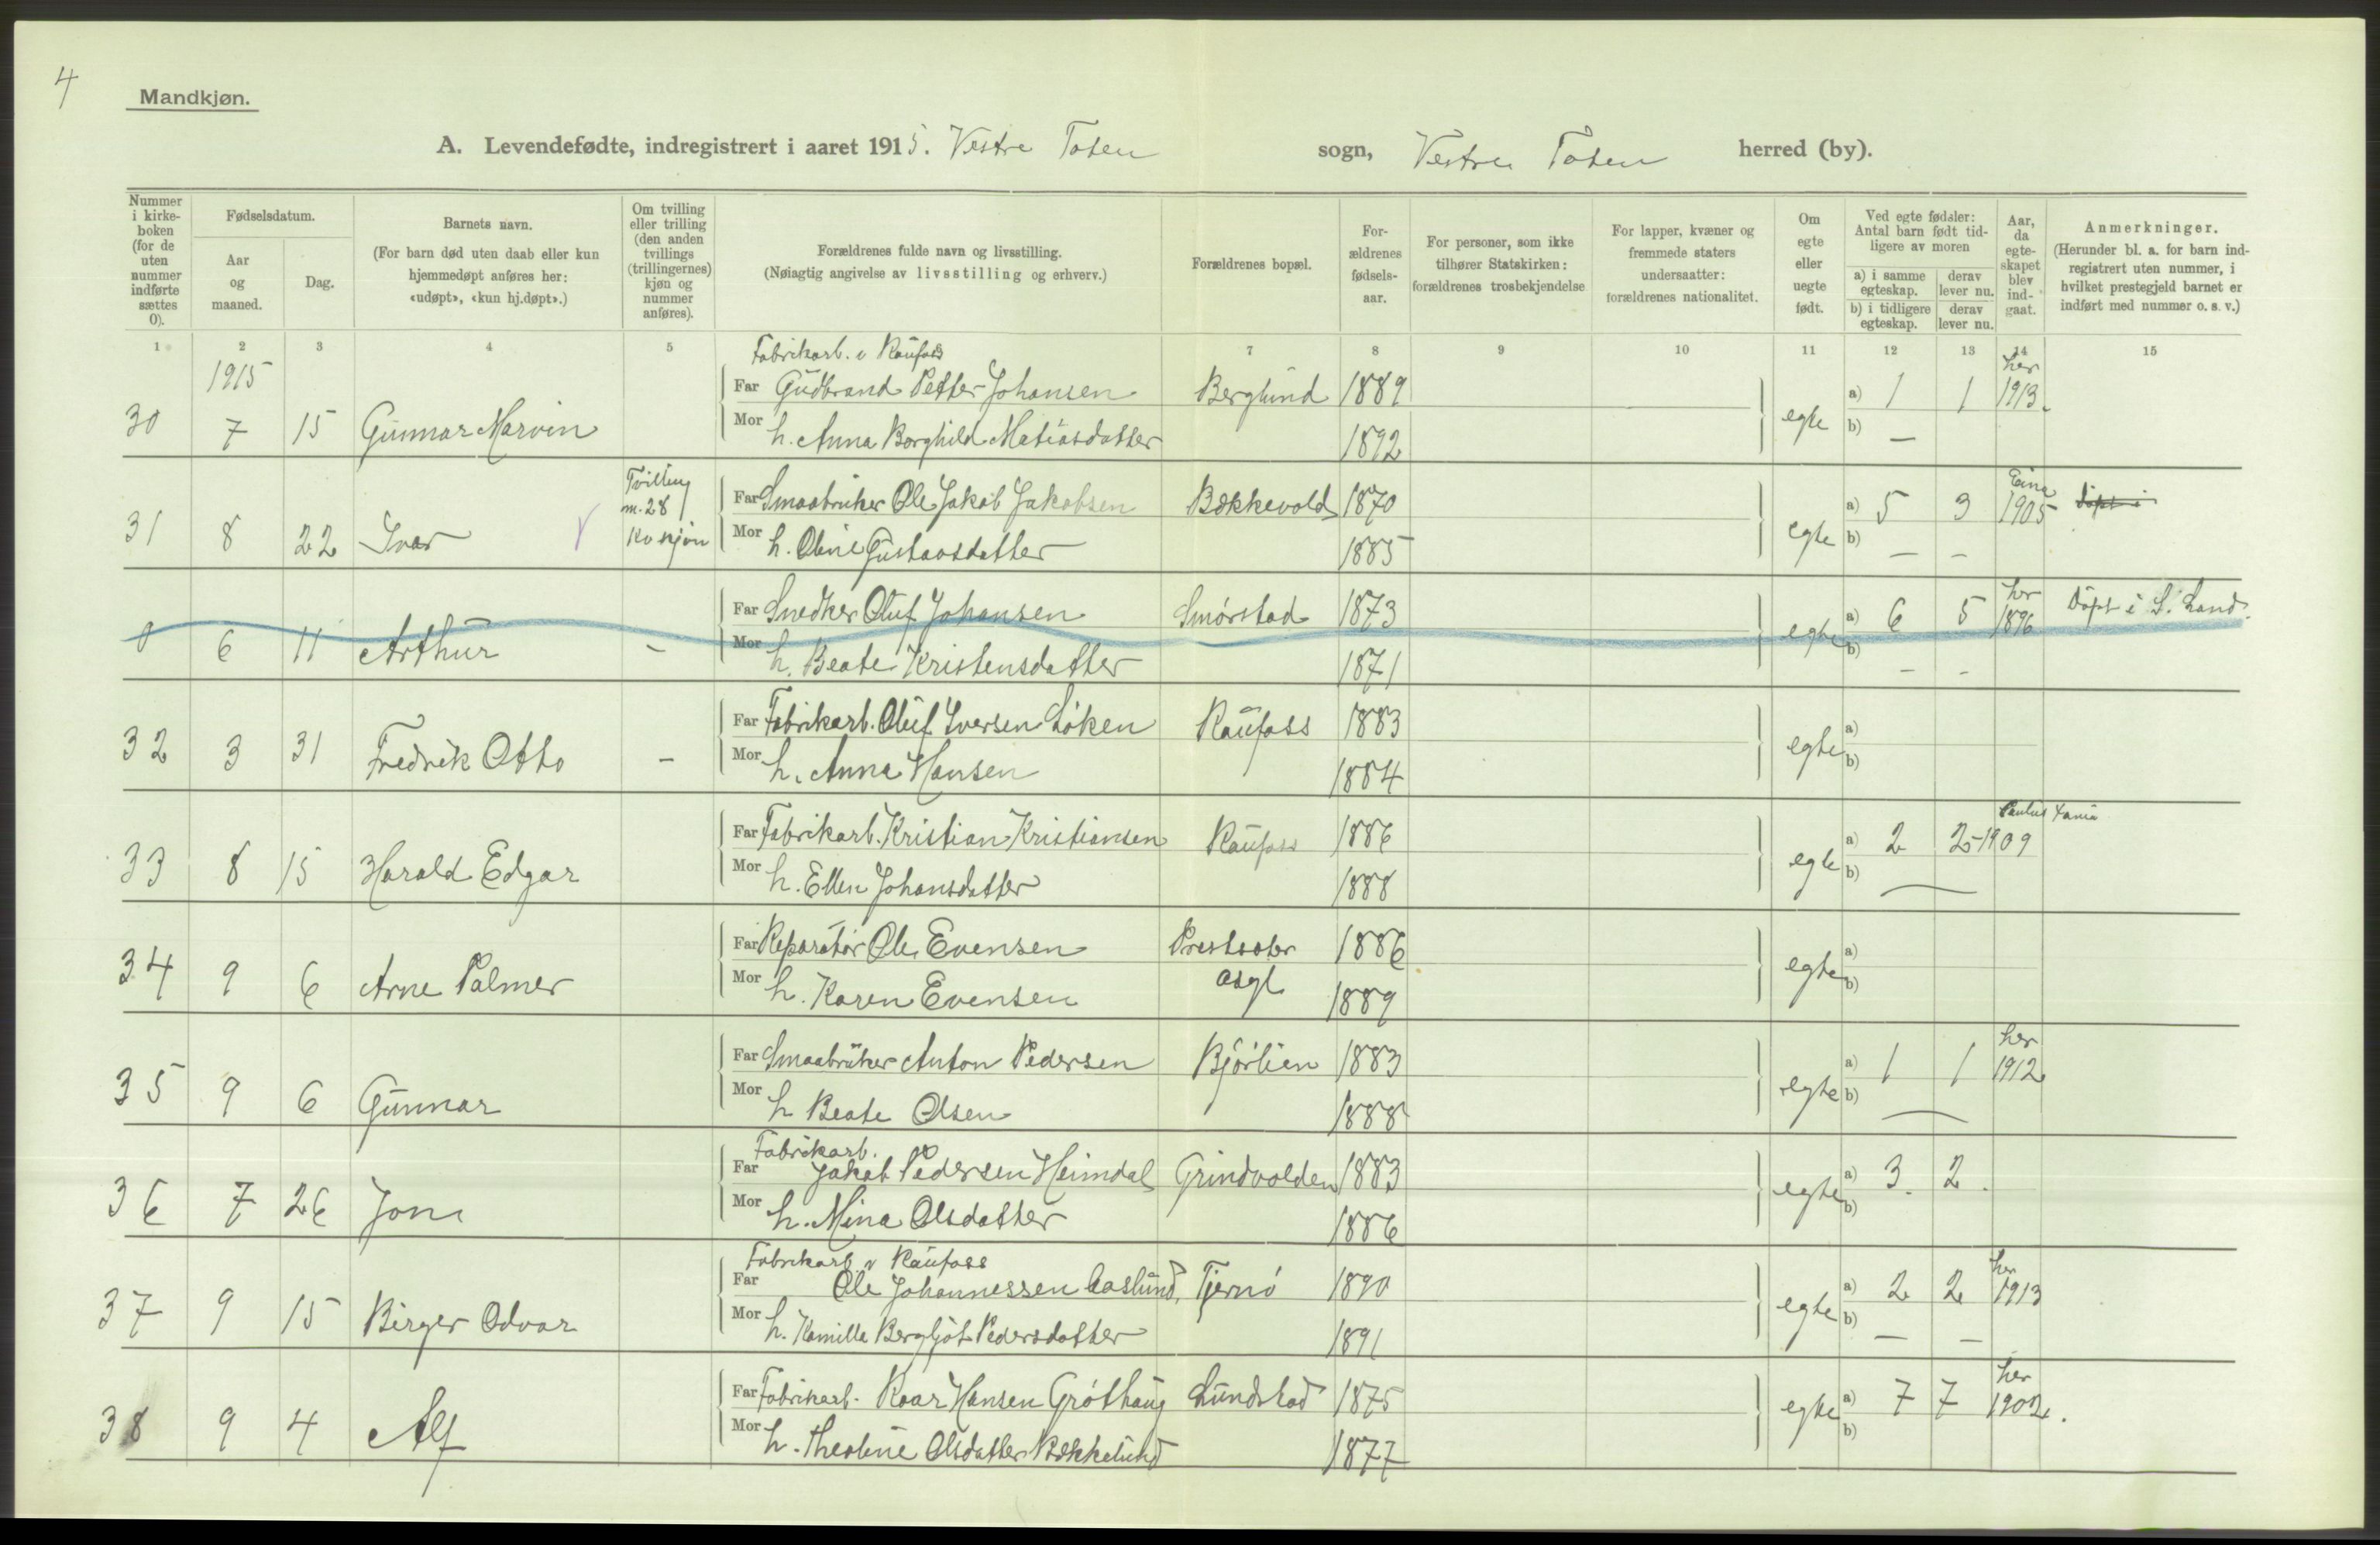 4
Mandkjøn.
A. Levendefødte, indregistrert i aaret 1915. Vestre Toten sogn, Vestre Toten herred (by).
Nummer i kirke-boken (for de uten nummer indførte sættes 0).
Fødselsdatum.
Aar og maaned.
Dag.
Barnets navn.
(For barn død uten daab eller kun hjemmedøpt anføres her: «udøpt», «kun hj.døpt».)
Om tvilling eller trilling (den anden tvillings (trillingernes) kjøn og nummer anføres).
Forældrenes fulde navn og livsstilling.
(Nøiagtig angivelse av livsstilling og erhverv.)
Forældrenes bopæl.
For-ældrenes fødsels-aar.
For personer, som ikke tilhører Statskirken: forældrenes trosbekjendelse
For lapper, kvæner og fremmede staters undersaatter: forældrenes nationalitet.
Om egte eller uegte født.
Ved egte fødsler: Antal barn født tid-ligere av moren
a) i samme egteskap.
derav lever nu.
b) i tidligere egteskap.
derav lever nu.
Aar, da egte-skapet blev ind-gaat.
Anmerkninger.
(Herunder bl. a. for barn ind-registrert uten nummer, i hvilket prestegjeld barnet er indført med nummer o. s. v.)
1 2 3 4 5 7 8 9 10 11 12 13 14 15
1915
Fabrikarb. v Raufoss
her
Far Gudbrand Petter Johansen Berglund 1889 a) 1 1 1913.
30 7 15 Gunnar Marvin egte b) —
Mor h. Anna Borghild Matiasdatter 1892
Tvilling m. 28 Kv kjøn
Eina
Far Smaabruker Ole Jakob Jakobsen Bækkevold 1870 a) 5 3 1905 Døpt i
31 8 22 Ivar egte b) — —
Mor h. Oline Gustavsdatter 1885
her
Far Snedker Oluf Johansen Smørstad 1873 a) 6 5 1896 Døpt i S. Land.
0 6 11 Arthur - egte b) - -
Mor h. Beate Kristensdatter 1871
Far Fabrikarb. Oluf Iversen Løken Raufoss 1883 a)
32 3 31 Fredrik Otto - egte b)
Mor h. Anna Hansen 1884
Paulus
Far Fabrikarb. Kristian Kristiansen Raufoss 1886 a) 2 2 - 1909
33 8 15 Harald Edgar egte b) —
Mor h. Ellen Johansdatter 1888
Far Reparatør Ole Evensen 1886 a)
34 9 6 Arne Palmer egte b)
Mor h. Karen Evensen 1889
her
Far Smaabruker Anton Pedersen Bjørlien 1883 a) 1 1 1912
35 9 6 Gunnar egte b) —
Mor h Beate Olsen 1888
Fabrikarb.
Far Jakob Pedersen Heimdal Grindvolden 1883 a) 3. 2.
36 7 26 Jon egte b)
Mor h. Mina Olsdatter 1886
Fabrikarb v Raufoss
her
Far Ole Johannessen Aaslund, Tjernø 1890 a) 2 2 1913
37 9 15 Birger Odvar egte b) — —
Mor h. Kamilla Bergljot Pedersdatter 1891
her
Far Fabrikarb. Roar Hansen Grøthaug Lundstad 1875 a) 7 7 1902.
38 9 4 Alf egte b)
Mor h. Theoline Olsdatter Bækkelund 1877